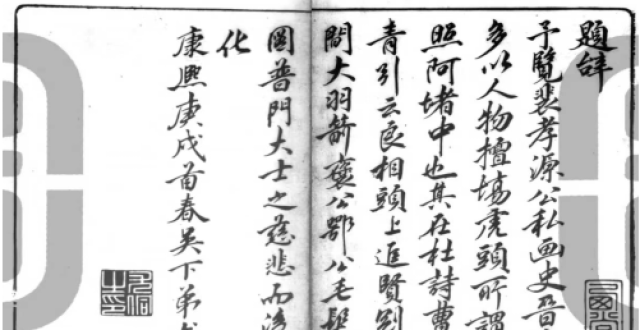 題辞
予覽裴孝源公私画史晋
多以人物擅場虎頭所謂
照阿堵中也其在杜詩曹
青引云良相頭上進賢
間大羽箭褒公鄂公毛髮
圖普門大士之慈悲而
化
康熙庚戌首春吳下弟